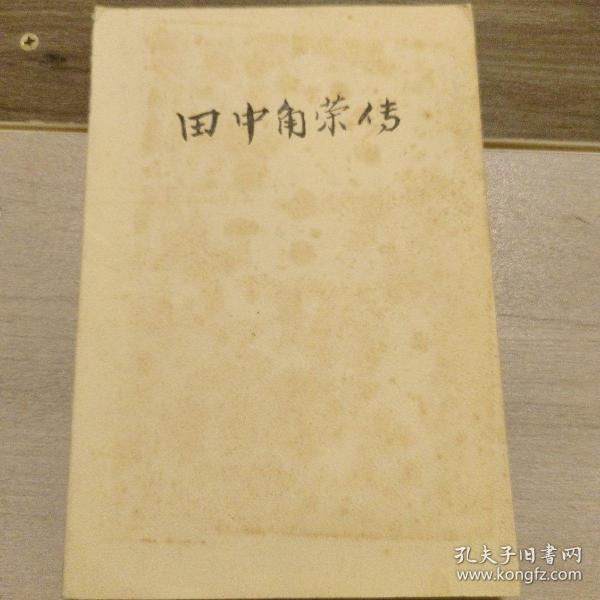 田中角荣传
孔夫子旧書网
www.kongfz.com